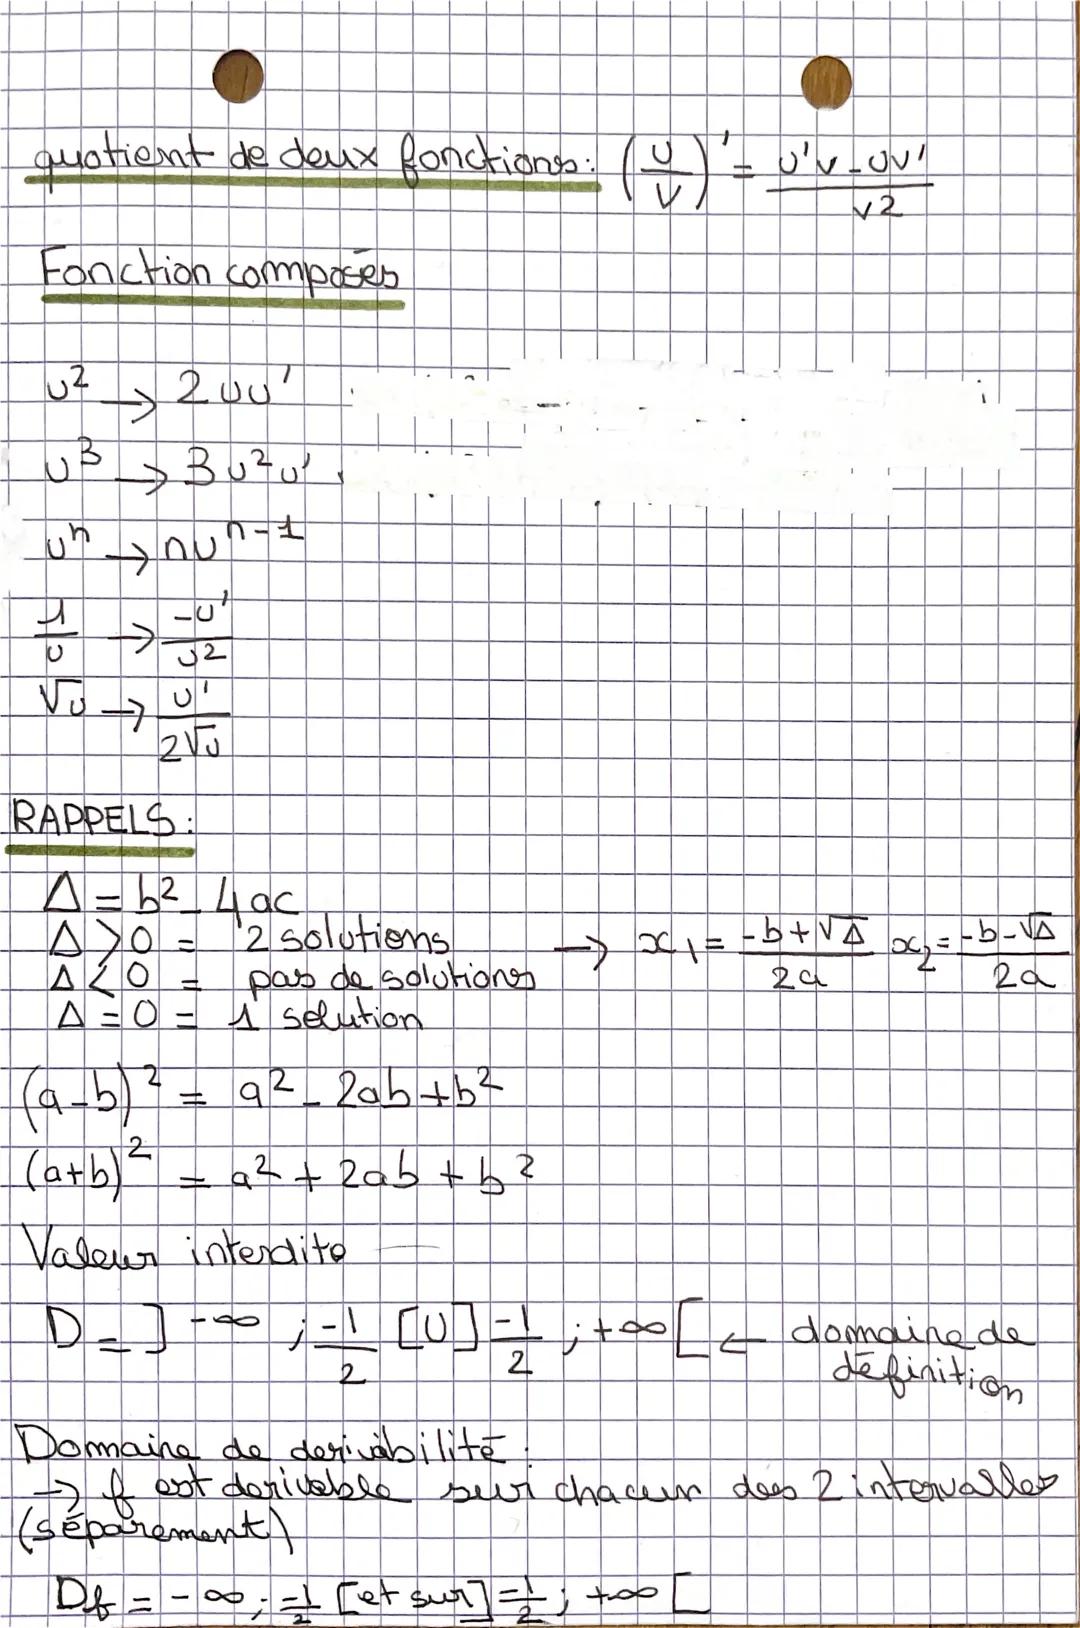 quotient de deux fonctions: (U/V)' = U'V - UV' / V2
Fonction composés
u² → 2uu'
u³ → 3u²u'
uⁿ → nuⁿ⁻¹
1/u → -u'/u²
√u → u'/2√u
RAPPELS:
Δ = b² - 4ac
Δ > 0 = 2 solutions → x₁ = -b+√Δ / 2a x₂ = -b-√Δ / 2a
Δ < 0 = pas de solutions
Δ = 0 = 1 solution
(a-b)² = a² - 2ab + b²
(a+b)² = a² + 2ab + b²
Valeur interdite
D = ]-∞ ; -1/2 [U] -1/2 ; +∞[ ← domaine de
définition
Domaine de derivabilité:
→ f est derivable sur chacun des 2 intervalles
(séparement)
Df = -∞ ; -1/2 [et sur] -1/2 ; +∞ [